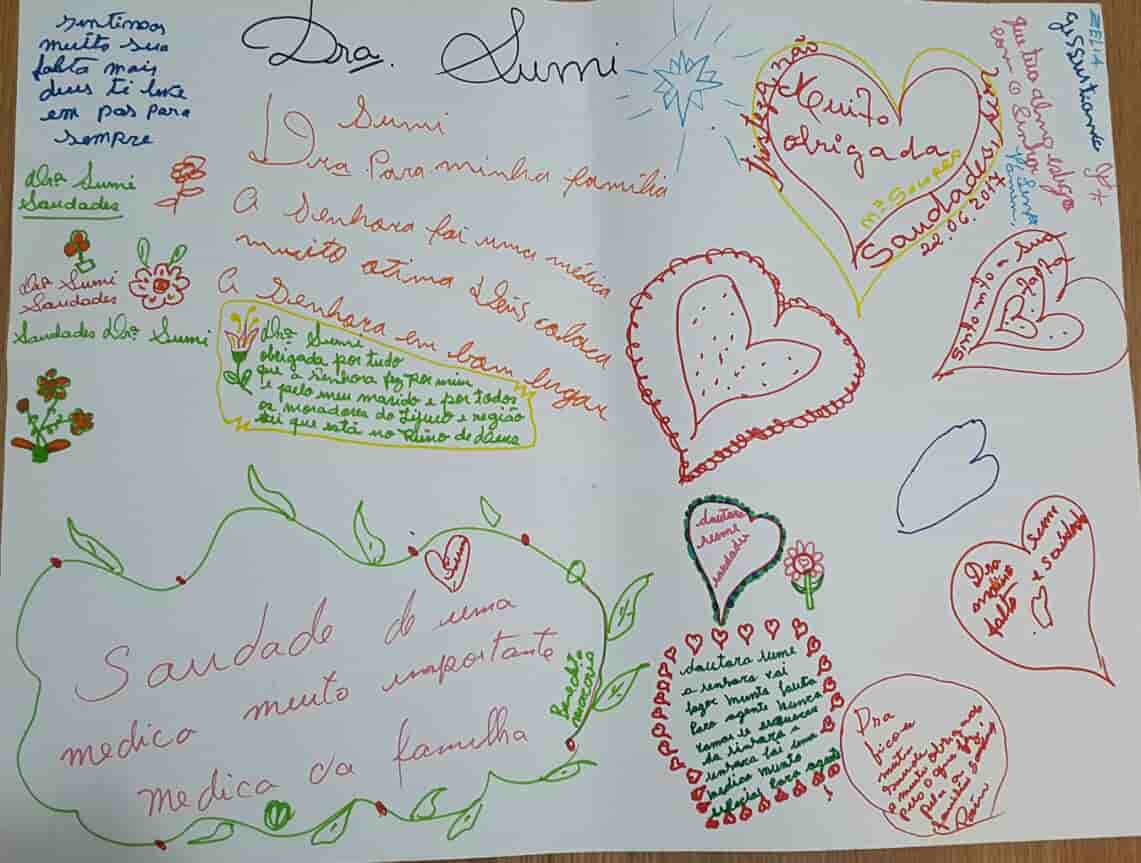 Dra. Sumi
sintimos
muito sua
falta mais
deus ti leve
em pas para
sempre
Drª Sumi
Saudades
Drª Sumi
Saudades
Saudades Drª Sumi
Sumi
Dra Para minha família
A Senhora foi uma médica
muito otima Deus coloca
A Senhora em bom lugar
Drª Sumi
obrigada por tudo
que a senhora fez por mim
e pelo meu marido e por todos
os moradores do Tijuco e região
sei que está no Reino de Deus
Muito
obrigada
Mª Soares
Saudades,
22.06.2017
ZELIA
que tua alma esteja
com o Senhor
Amem,
Sinto mto a sua
falta
doutora
sumi
saudades
Dra
Sumi
falta
+ saudade
Saudade de uma
medica muito importante
medica da familha
Sumi
Benedita
doutora sume
a senhora vai
fazer munta falta
para agente nunca
vamos te esquecer
da sinhora a
senhora foi uma
medica munto
especial para agente
Dra
ficou
muita
saudade
e muito obrigado
pelo o que fez
pela a
familia